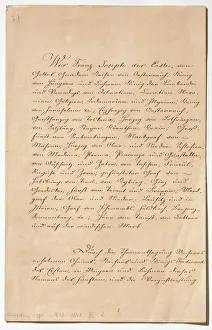 Wir Franz Joseph der Erste, von
Gottes Gnaden Kaiser von Oesterreich, König
von Hungarn und Böhmen, König der Lombardei
und Venedigs, von Dalmatien, Croatien, Slavo-
nien, Galizien, Lodomerien und Illyrien, König
von Jerusalem etc., Erzherzog von Oesterreich,
Großherzog von Toskana, Herzog von Lothringen,
von Salzburg, Steyer, Kärnthen, Krain, Groß-
fürst von Siebenbürgen, Markgraf von
Mähren, Herzog von Ober- und Nieder-Schle-
sien, von Modena, Parma, Piacenza und Guastalla,
von Auschwitz und Zator, von Teschen, Friaul,
Ragusa und Zara, gefürsteter Graf von
Habsburg, von Tirol, von Kyburg, Görz und
Gradiska, Fürst von Trient und Brixen, Mark-
graf von Ober- und Nieder-Lausitz und in
Istrien, Graf von Hohenembs, Feldkirch, Bregenz,
Sonnenberg etc., Herr von Triest, von Cattaro
und auf der windischen Mark.
Durch die Thronentsagung Unseres
erhabenen Oheims, Kaisers und Königs Ferdinand
des Ersten, in Hungarn und Böhmen dieses
Namens des Fünften, und die Verzichtleistung